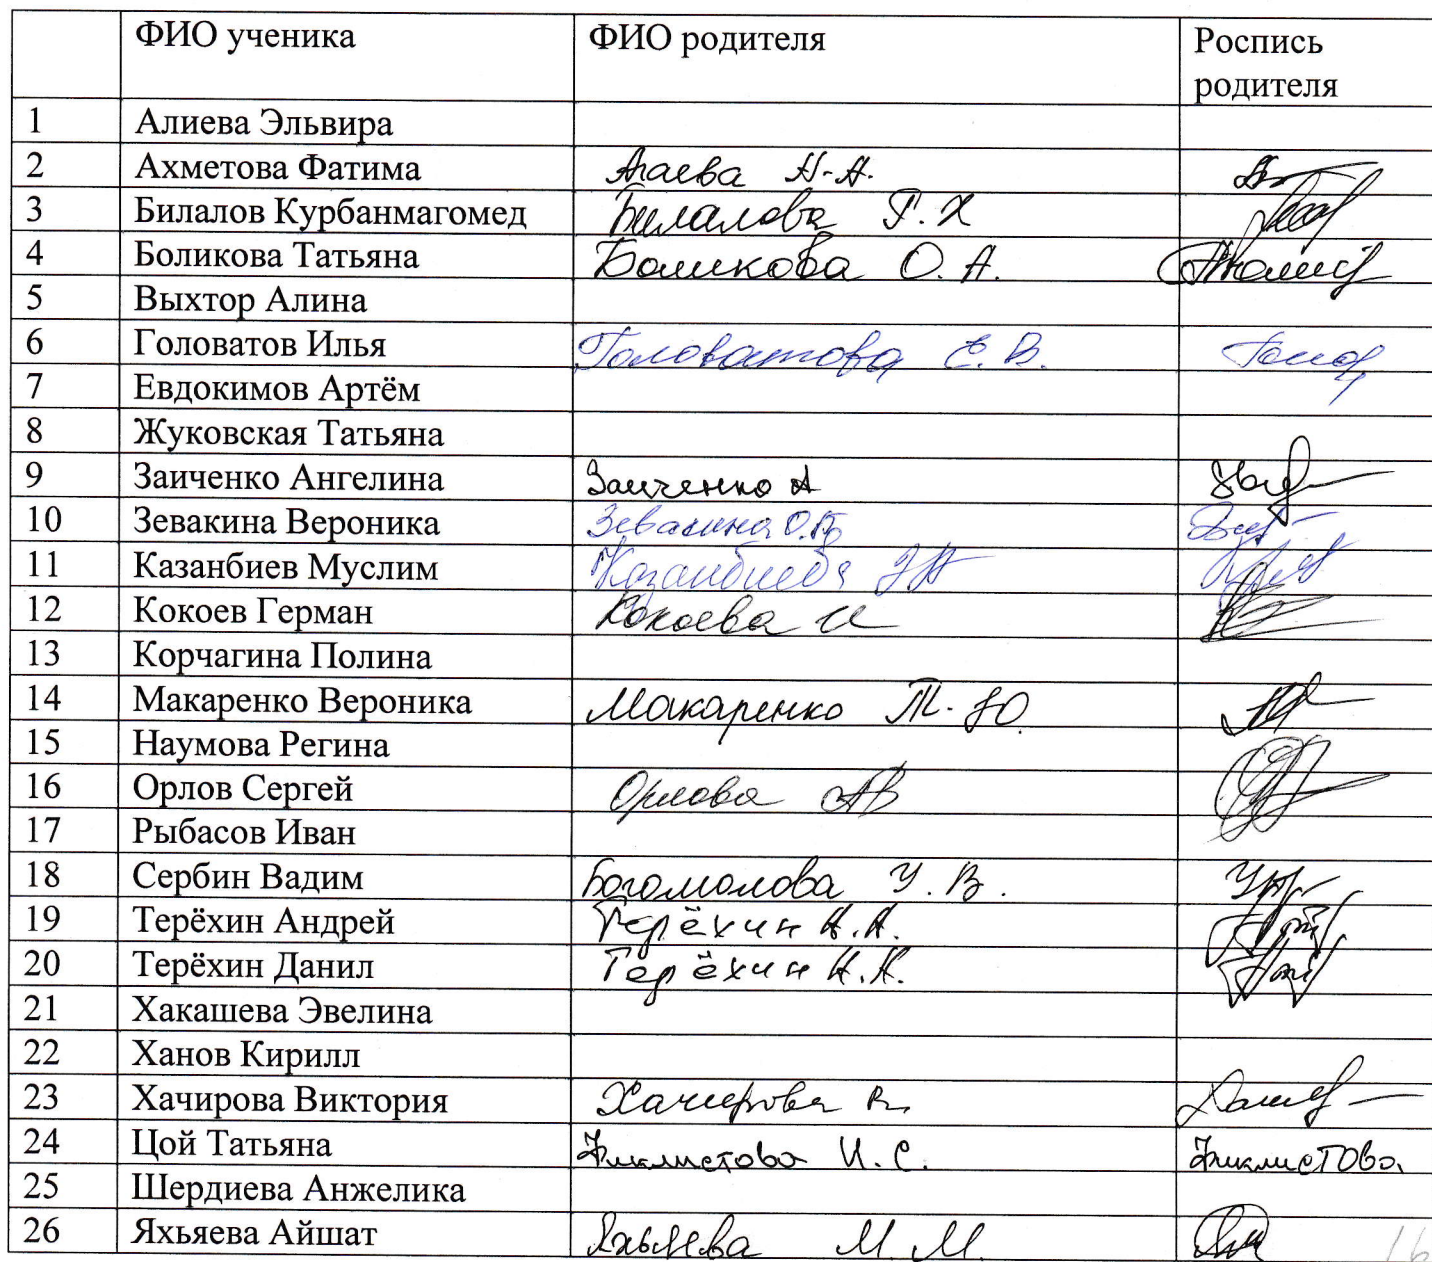 ФИО ученика ФИО родителя Роспись родителя
1 Алиева Эльвира
2 Ахметова Фатима Агаева Н.А.
3 Билалов Курбанмагомед Билалова Г.Х
4 Боликова Татьяна Боликова О.А.
5 Выхтор Алина
6 Головатов Илья Головатова Е.В.
7 Евдокимов Артём
8 Жуковская Татьяна
9 Заиченко Ангелина Заиченко А
10 Зевакина Вероника Зевакина О.В.
11 Казанбиев Муслим Казанбиева
12 Кокоев Герман Кокоева И
13 Корчагина Полина
14 Макаренко Вероника Макаренко Т.Ю.
15 Наумова Регина
16 Орлов Сергей Орлова АВ
17 Рыбасов Иван
18 Сербин Вадим Богомолова У.В.
19 Терёхин Андрей Терёхин А.А.
20 Терёхин Данил Терёхин А.А.
21 Хакашева Эвелина
22 Ханов Кирилл
23 Хачирова Виктория Хачирова
24 Цой Татьяна И.С.
25 Шердиева Анжелика
26 Яхьяева Айшат Яхьяева М.М. 16